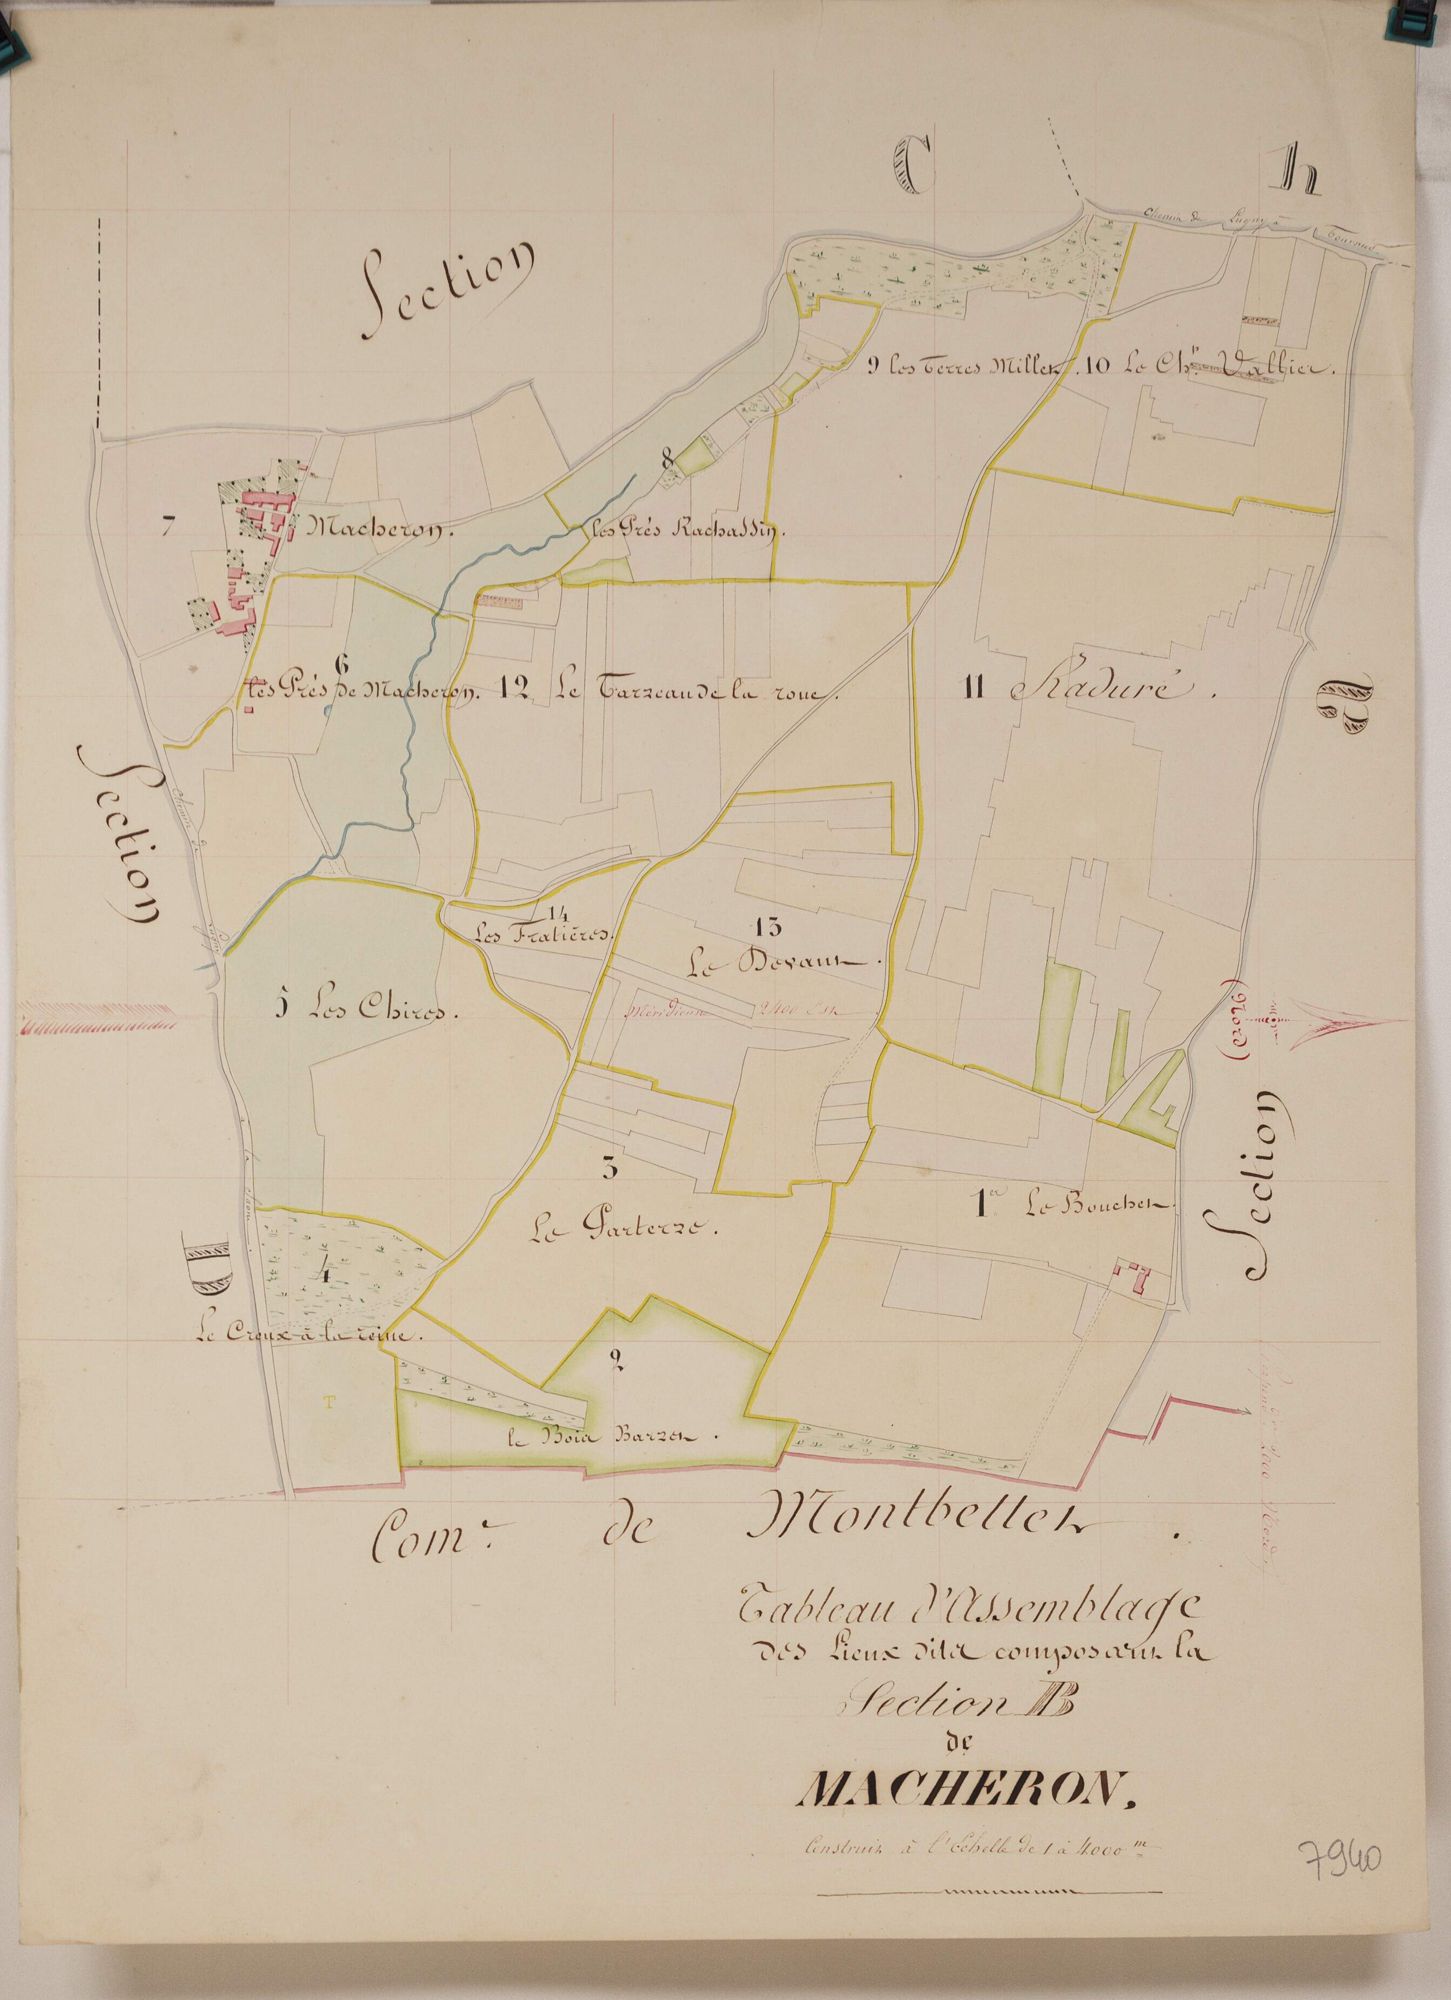 C h
Chemin de Lugny à Tournus
Section
9 les Terres Millet. 10 Le Ch.ⁿ Vallier.
8
7 Macheron.
les Prés Rachassin.
6
les Prés de Macheron. 12 Le Carreau de la roue. 11 Raduré.
a
Section
Chemin de
14
Les Fratières.
13
Le Devant.
5 Les Chires.
Méridienne 2400 Est
(9202)
Section
3
Le Parterre.
1er Le Bouchet
D
4
Le Creux à la reine.
2
T
le Bois Barret.
Com.e de Montbellet.
Tableau d'Assemblage
des Lieux dits composant la
Section B
de
MACHERON,
Construit à l'Echelle de 1 à 4000 m
7940